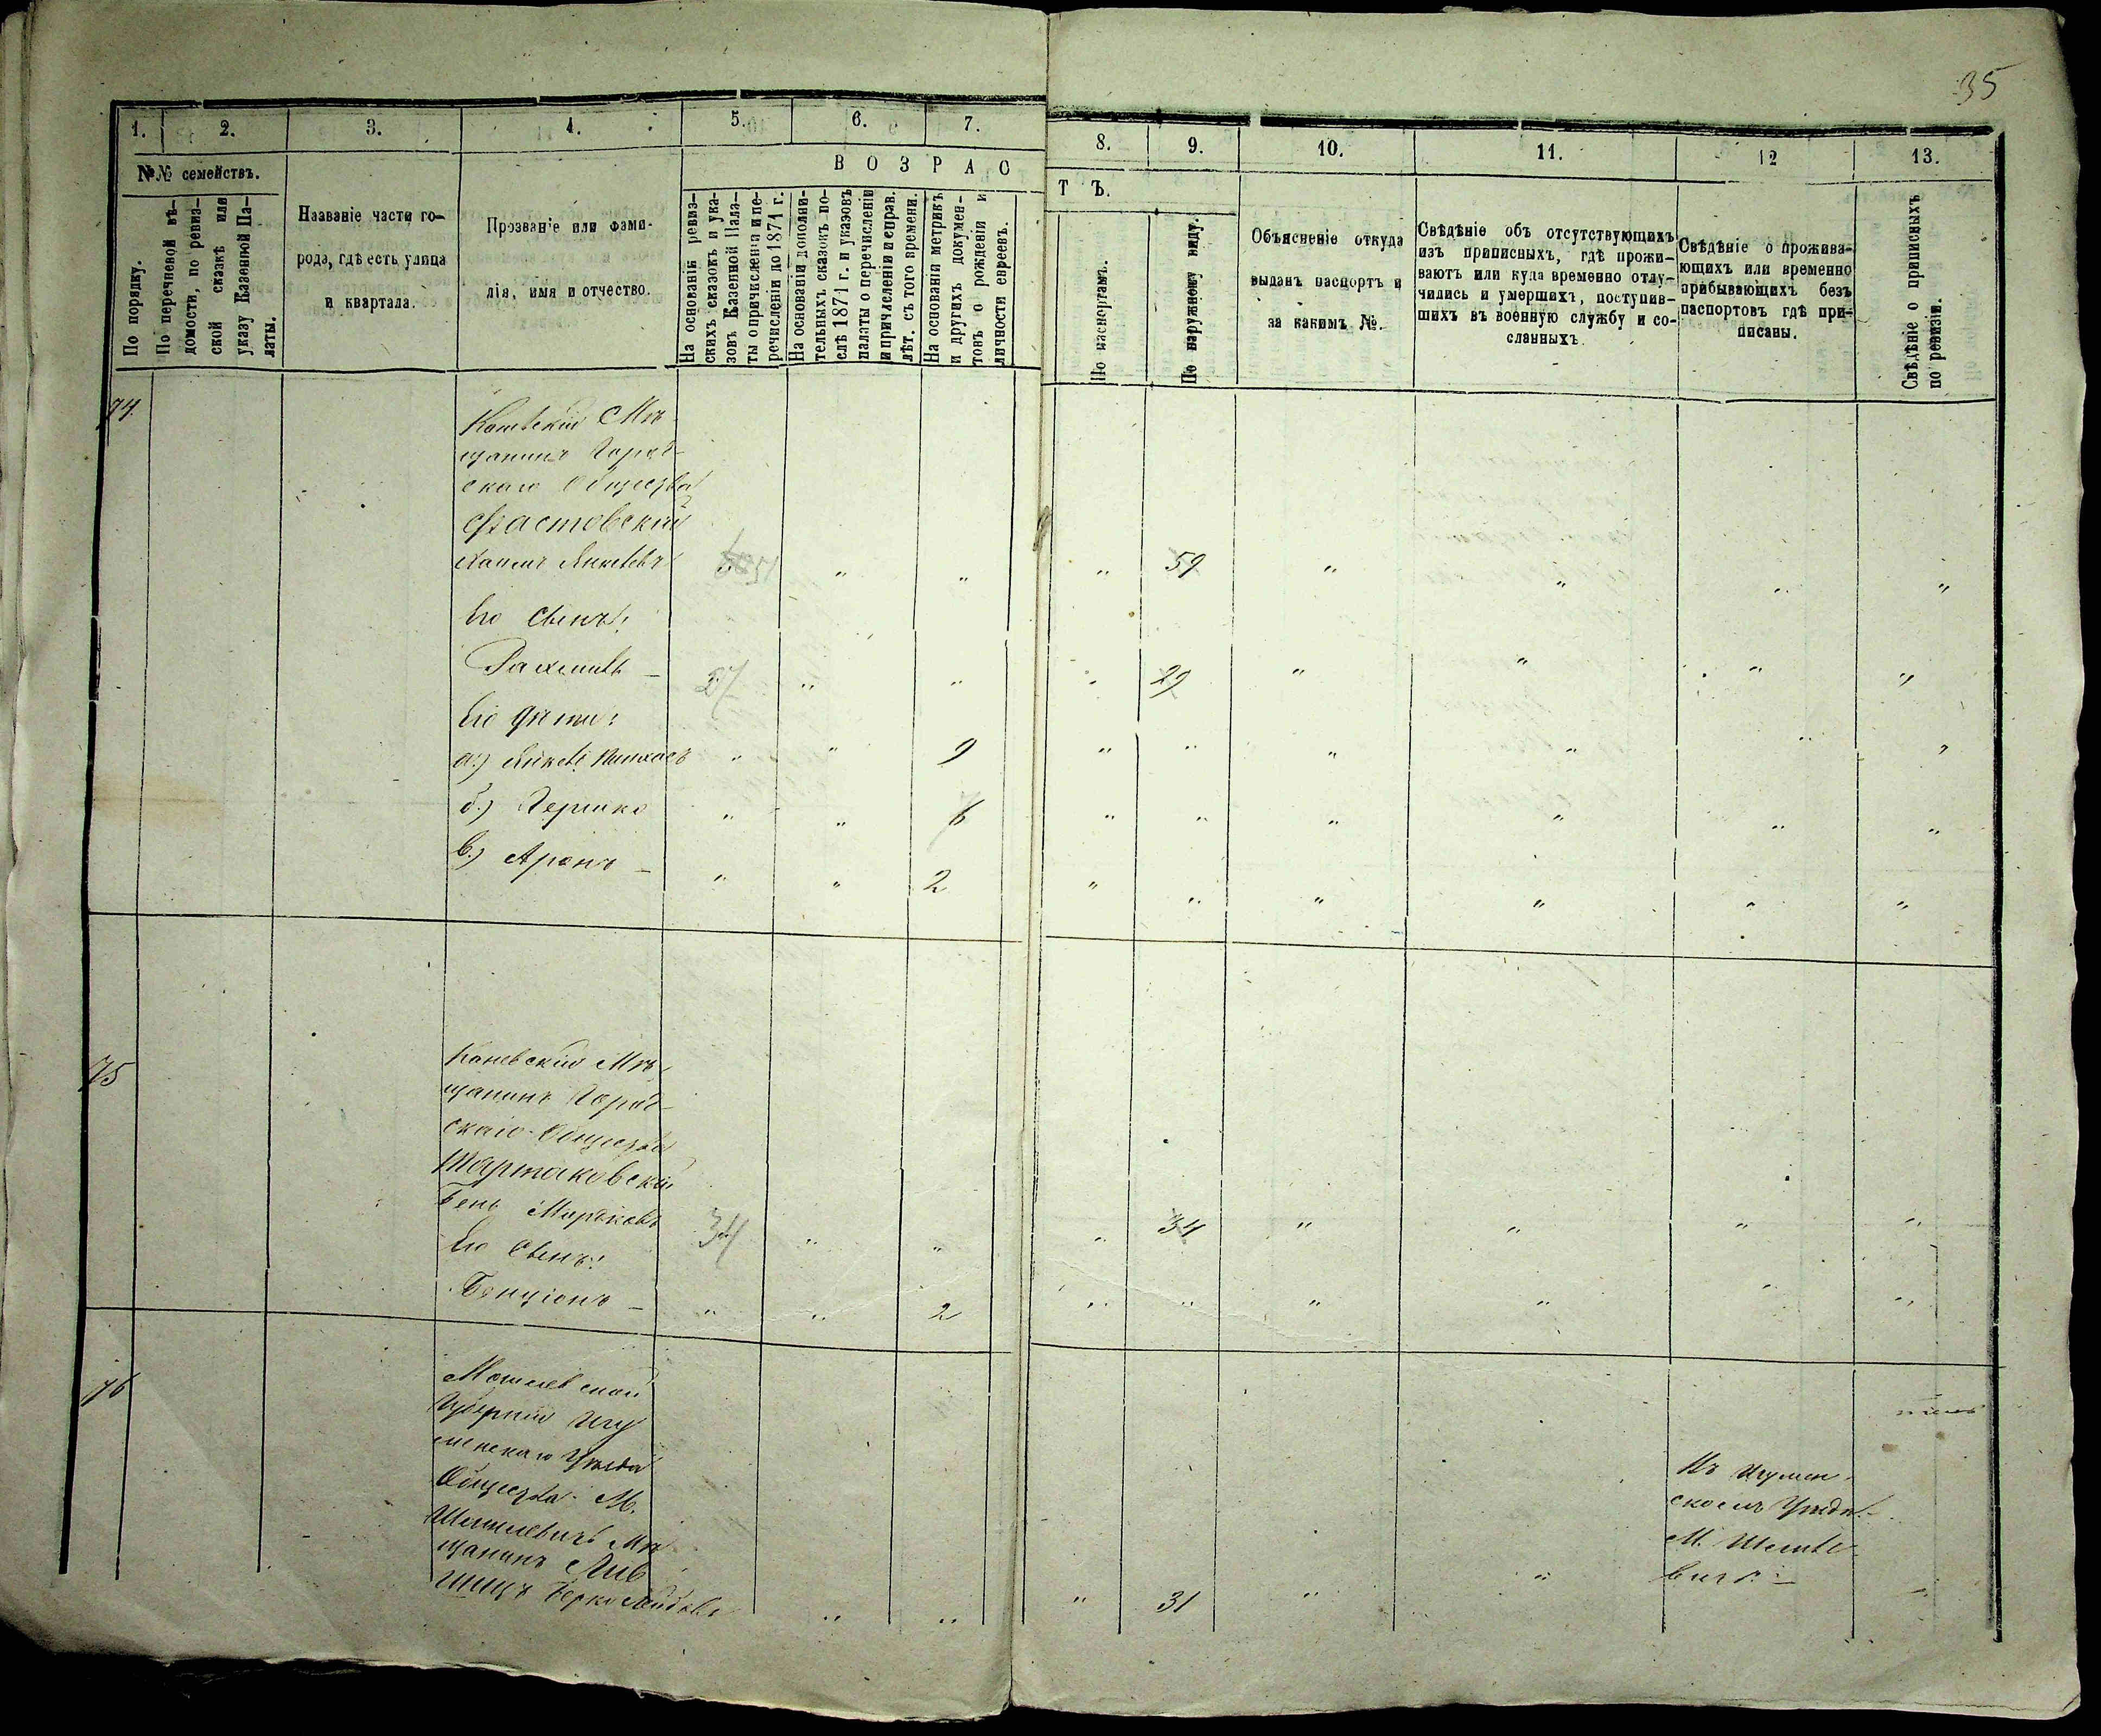 35
1. 2. 3. 4. 5. 6. 7. 8. 9. 10. 11. 12 13.
№№ семействъ.
По порядку.
По перечневой вѣ-
домости, по ревиз-
ской сказкѣ или
указу Казенной Па-
латы.
Названіе части го-
рода, гдѣ есть улица
и квартала.
Прозваніе или фами-
лія, имя и отчество.
ВОЗРАС
ТЪ.
На основаніи ревиз-
скихъ сказокъ и ука-
зовъ Казенной Пала-
ты о причисленіи и пе-
речисленіи до 1871 г.
На основаніи дополни-
тельныхъ сказокъ по-
слѣ 1871 г. и указовъ
палаты о перечисленіи
и причисленіи и справ.
лѣт. съ того времени.
На основаніи метрикъ
и другихъ докумен-
товъ о рожденіи и
личности евреевъ.
По паспортамъ.
По наружному виду.
Объясненіе откуда
выданъ паспортъ и
за какимъ №.
Свѣдѣніе объ отсутствующихъ
изъ приписныхъ, гдѣ прожи-
ваютъ или куда временно отлу-
чились и умершихъ, поступив-
шихъ въ военную службу и со-
сланныхъ.
Свѣдѣніе о прожива-
ющихъ или временно
прибывающихъ безъ
паспортовъ гдѣ при-
писаны.
Свѣдѣніе о приписныхъ
по ревизіи.
74
Каневскій Мѣ-
щанинъ Город-
скаго Общества
Фастовскій
Янкелевъ 51 " " " 59 " " " "
Его Сынъ:
27 " " " 29 " " " "
Его дѣти:
а.) Янкель Пинхасъ " " 9 " " " " " "
б.) Гершко " " 6 " " " " " "
в.) Аронъ — " " 2 " " " " " "
75
Каневскій Мѣ-
щанинъ Город-
скаго Общества
Тартаковскій
Бень 34 " " " 34 " " " "
Его Сынъ:
Бенціонъ — " " 2 " " " " " "
76
Могилевской
Губерніи Игу
менскаго Уѣзда
Общества М.
Мѣ
щанинъ Лив
шицъ Берко " " " 31 " "
Въ Игумен-
скомъ Уѣздѣ
М.
вичѣ. —